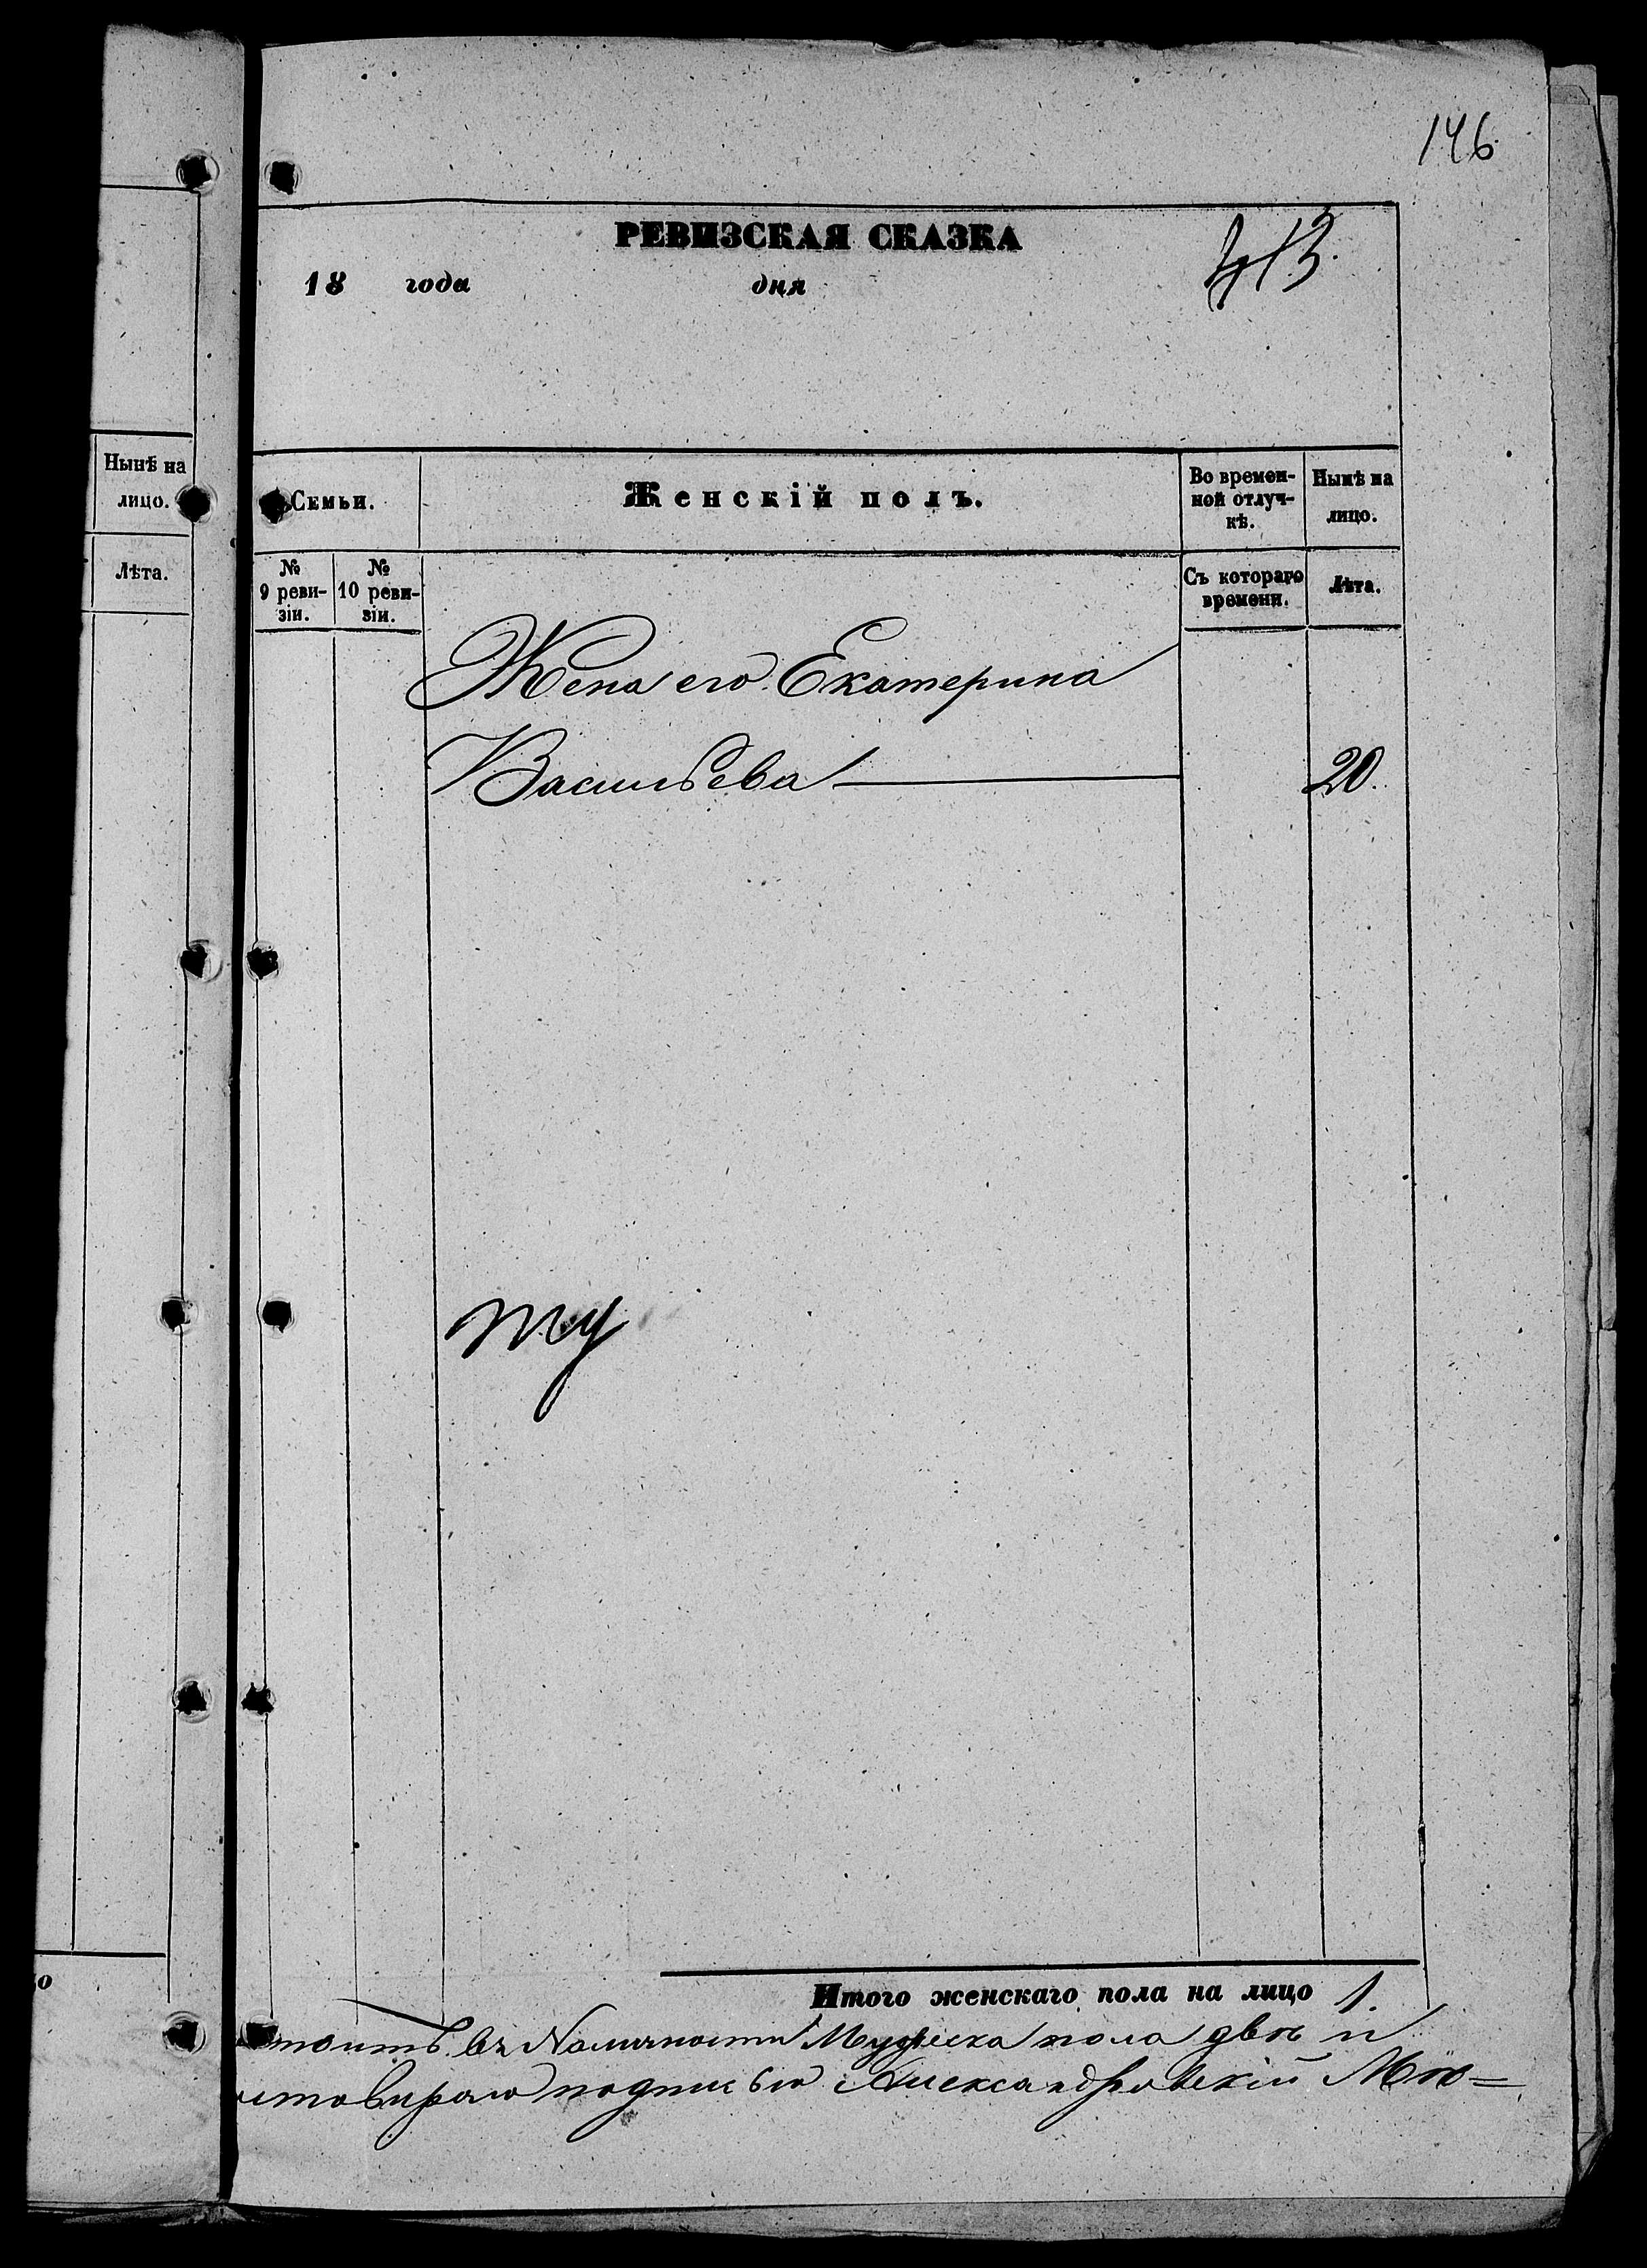 146
РЕВИЗСКАЯ СКАЗКА
413.
18 года дня
Нынѣ на
лицо.
Лѣта.
Семьи.
Женскій полъ.
Во времен-
ной отлуч-
кѣ.
Нынѣ на
лицо.
№
9 реви-
зіи.
№
10 реви-
зіи.
Съ котораго
времени.
Лѣта.
Жена его Екатерина
Васильева 20.
ту
Итого женскаго пола на лицо 1.
въ Наличности пола двѣ и
подписью Александровскій